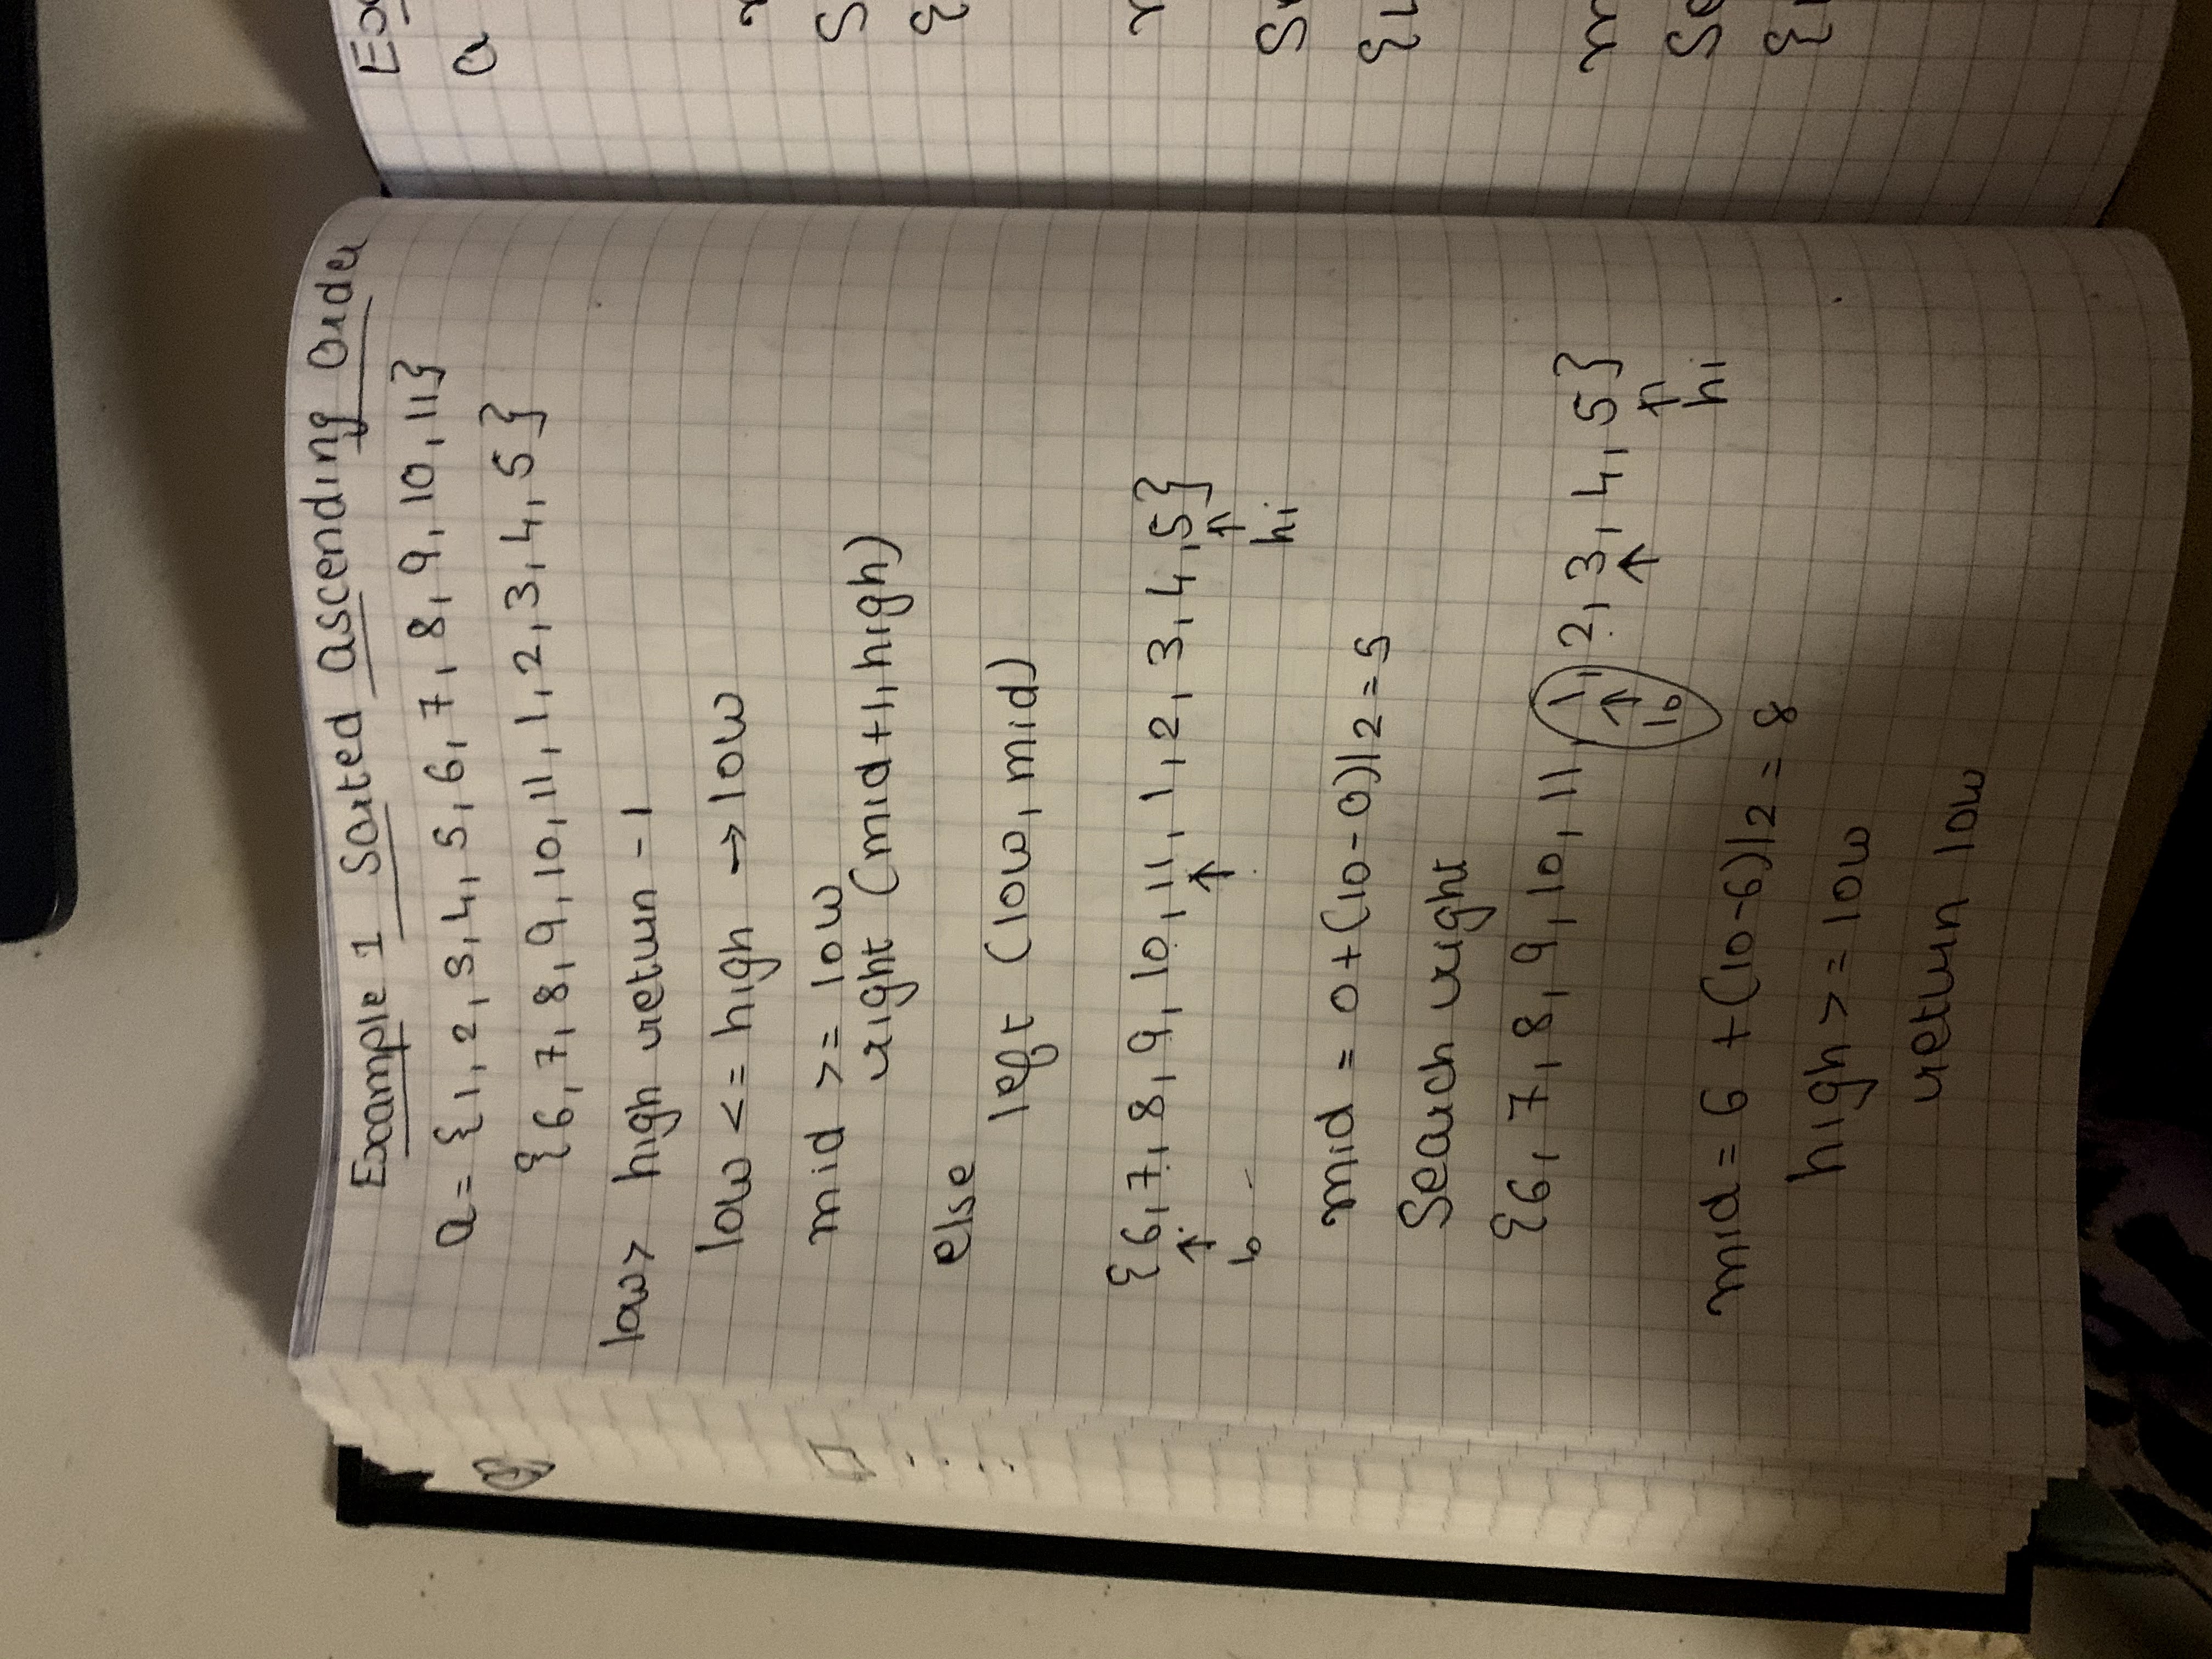 Example 1 Sorted Ascending Order
a = {1, 2, 3, 4, 5, 6, 7, 8, 9, 10, 11}
{6, 7, 8, 9, 10, 11, 1, 2, 3, 4, 5}
low > high return -1
low <= high → low
mid >= low
right (mid+1, high)
else
left (low, mid)
{6, 7, 8, 9, 10, 11, 1, 2, 3, 4, 5}
↑ ↑ ↑
lo hi
mid = 0+(10-0)/2 = 5
Search right
{6, 7, 8, 9, 10, 11, 1, 2, 3, 4, 5}
↑ ↑ ↑
lo hi
mid = 6 +(10-6)/2 = 8
high >= low
return low
a